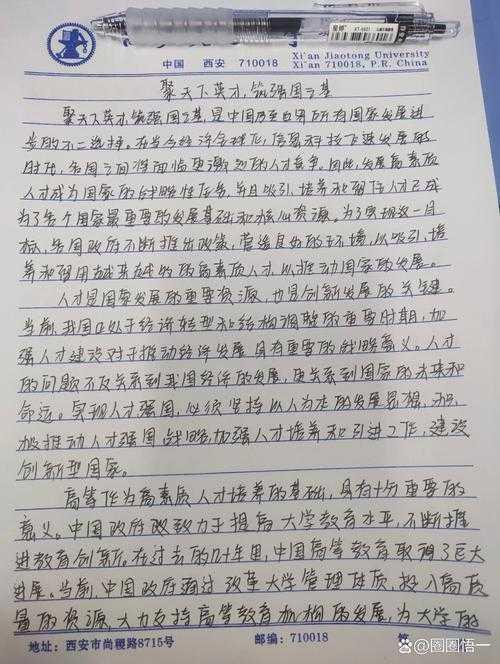 中国 西安 710018
Xi'an Jiaotong University
Xi'an 710018, P.R. China
聚天下英才,筑强国之基
聚天下英才,筑强国之基,是中国乃至世界所有国家发展进
步的不二选择。在当今经济全球化,信息科技飞速发展的
时代,各国之间皆面临更激烈的人才竞争。因此,发展高素质
人才成为国家的战略性任务,并且吸引、培养和留住人才已成
为了各个国家最重要的发展基础和核心资源。为了实现这一目
标,各国政府不断推出政策,营造良好的环境,以吸引、培
养和留用越来越多的高素质人才,以推动国家的发展。
人才是国家发展的重要资源,也是创新发展的关键。
当前,我国正处于经济转型和结构调整的重要时期,加
强人才建设对于推动经济发展具有重要的战略意义。人才
的问题不仅关系到我国经济的发展,更关系到国家的未来和
命运。实现人才强国,必须坚持以人为本的发展思想,积
极推动人才强国战略,加强人才培养和引进工作,建设
创新型国家。
高等作为高素质人才培养的基础,具有十分重要的
意义。中国政府致力于提高大学教育水平,不断推
进教育创新。在过去的几十年里,中国高等教育取得了巨大
进展。当前,中国政府通过改革大学管理体质,投入高质
量的资源,大力支持高等教育机构的发展,为大学的
地址:西安市尚稷路8715号
邮编:710018
@圈圈悟一